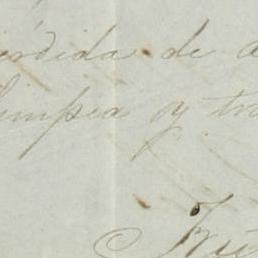 pérdida de a
limpia y tra